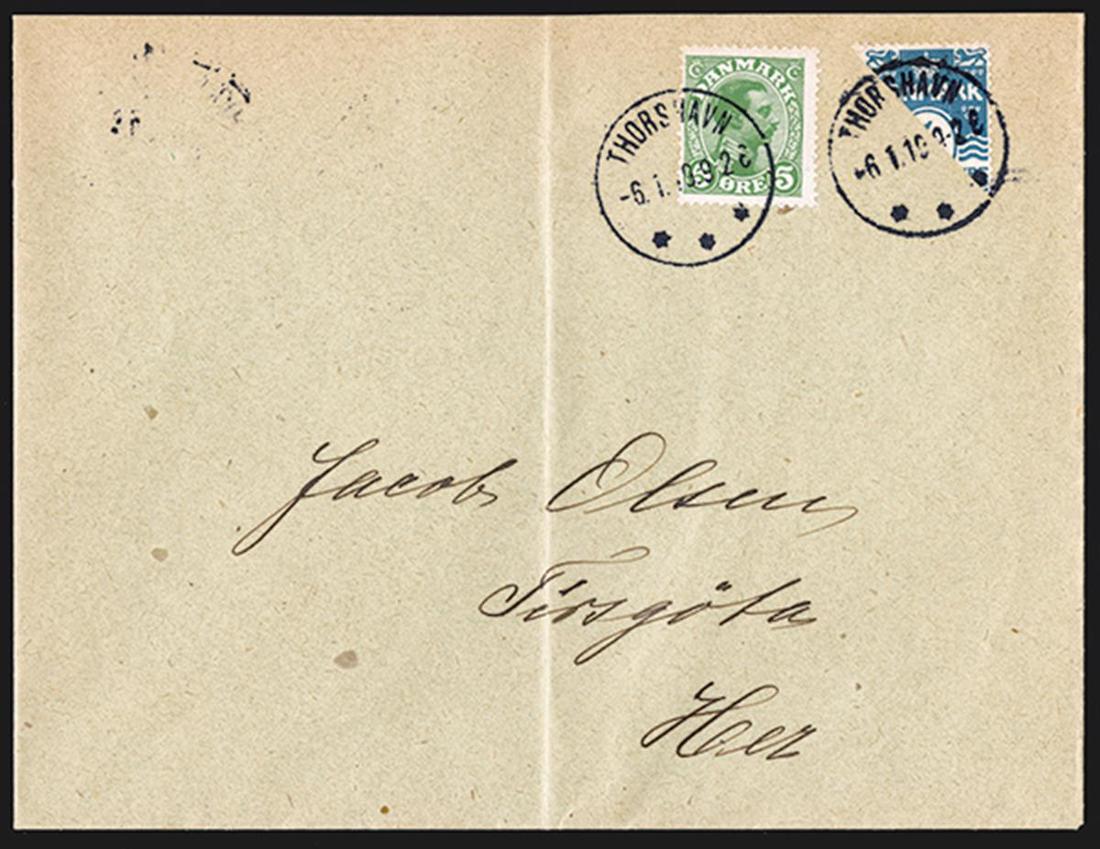 DANMARK
5 ØRE 5
THORSHAVN
-6.1.19.9-2E
THORSHAVN
-6.1.19 9-2E
Jacob Olsen
Tirsgöta
Her